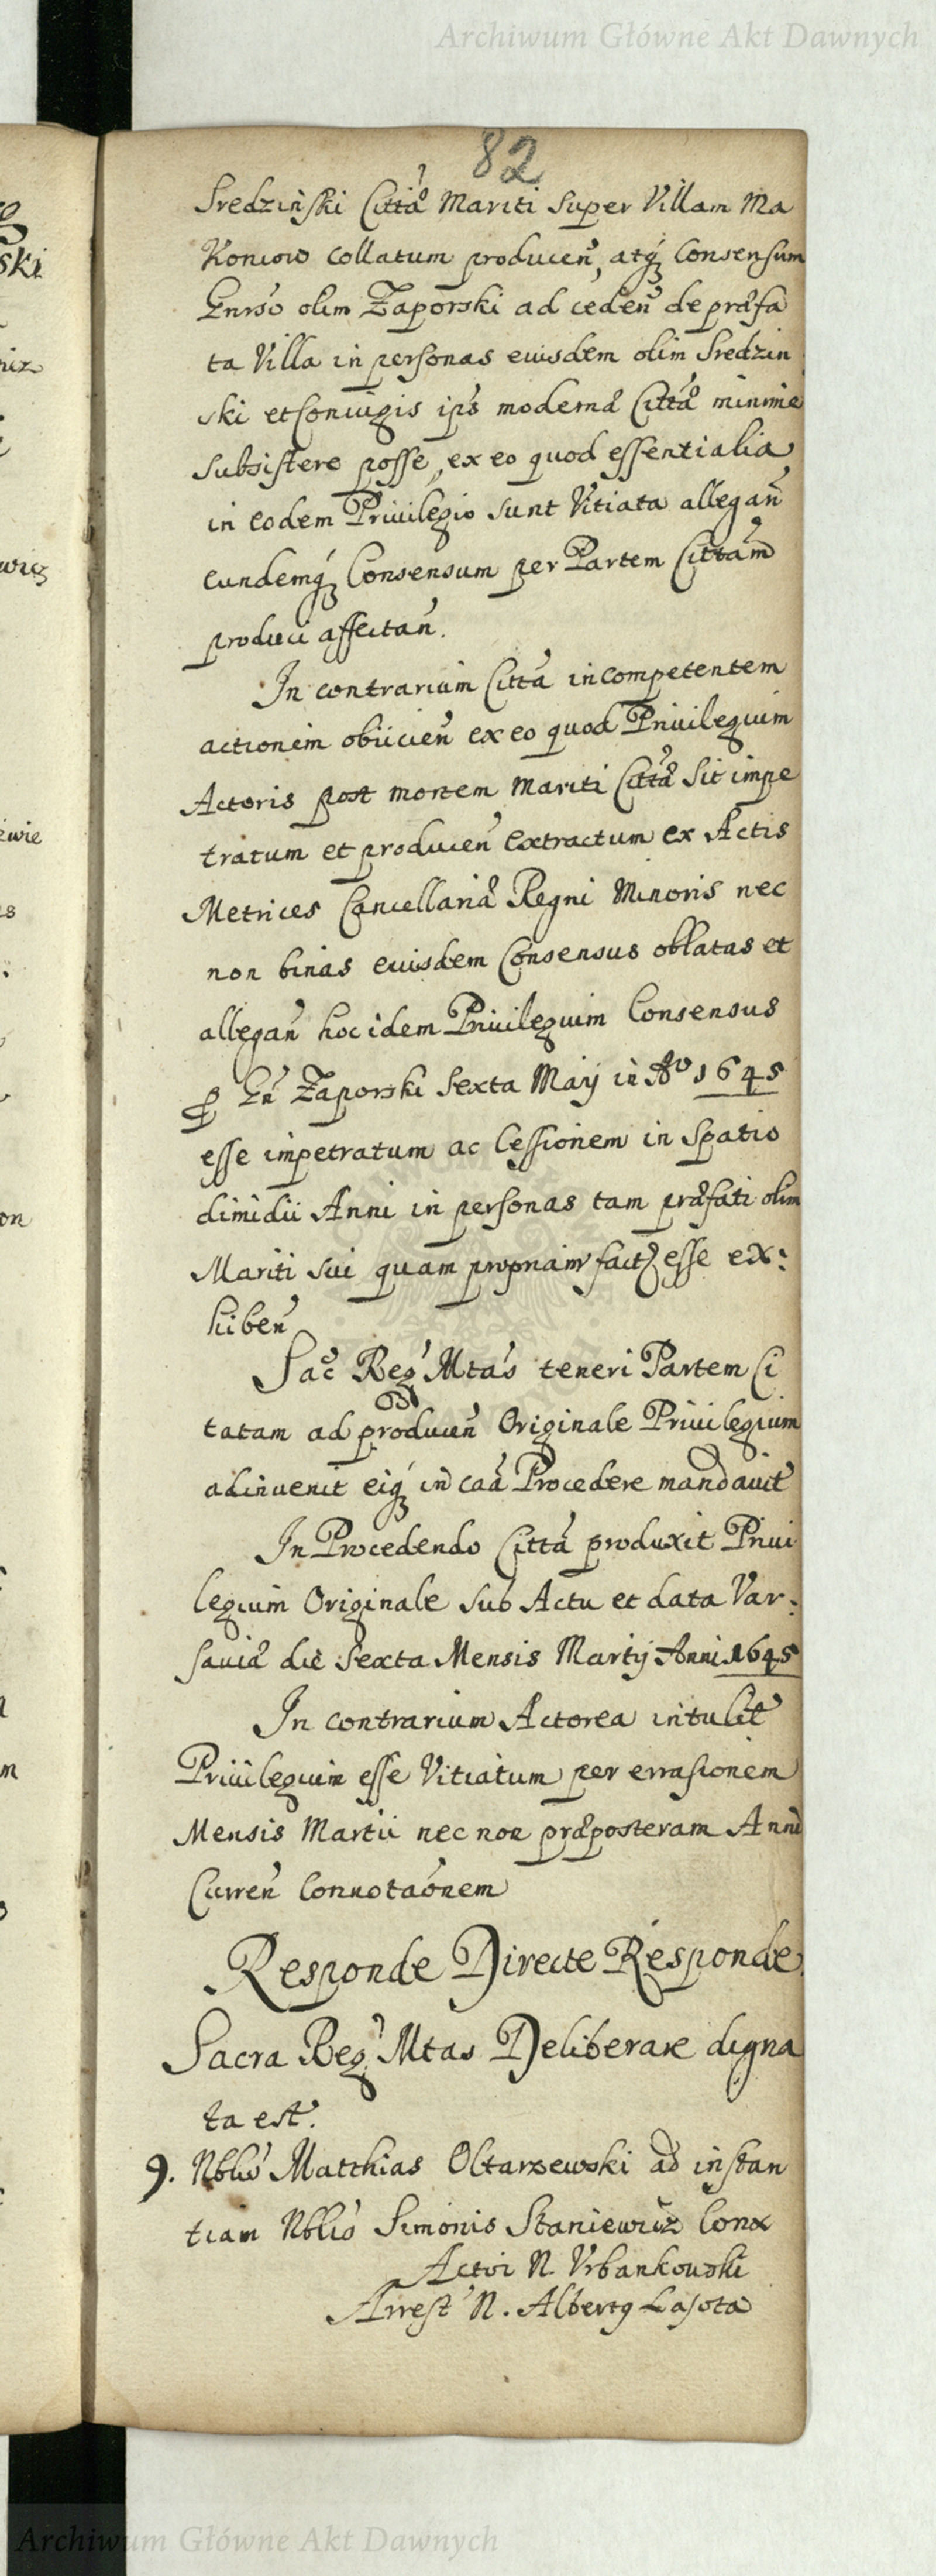 Archiwum Główne Akt Dawnych
82
Sredzinski Cittæ Mariti super Villam Ma
koniow collatum producen̄, atq́ Consensum
Gnrso olim Zaporski ad ceden̄ de præfa
ta Villa in personas eiusdem olim Sredzin
ski et Coniugis ips̄ modernæ Cittæ minime
subsistere posse, ex eo quod essentialia
in eodem Priuilegio sunt Vitiata allegan̄
eundemq́ Consensum per Partem Cittam
produci affectan̄.
In contrarium Citta incompetentem
actionem obiicien̄ ex eo quod Priuilegium
Actoris post mortem Mariti Cittæ sit impe
tratum et producen̄ extractum ex Actis
Metrices Cancellariæ Regni Minoris nec
non binas eiusdem Consensus oblatas et
allegan̄ hoc idem Priuilegium Consensus
ꝑ Gn̄ Zaporski Sexta Maij in Aº 1645
esse impetratum ac Cessionem in spatio
dimidii Anni in personas tam præfati olim
Mariti sui quam propriam factꝫ esse ex:
hiben̄
Sac̄ Reg̓ Mtas teneri Partem Ci
tatam ad producen̄ Originale Priuilegium
adinuenit eiq́ in caā Procedere mandauit
In Procedendo Citta produxit Priui
legium Originale sub Actu et data Var:
sauiæ die Sexta Mensis Martij Anni 1645
In contrarium Actorea intulit
Priuilegium esse Vitiatum per errasionem
Mensis Martii nec non præposteram Anni
Curren̄ Connotaōnem
Responde Directe Responde
Sacra Reg̓ Mtas Deliberare digna
ta est.
9. Nblis Matthias Oltarzewski ad instan
tiam Nblis Simonis Staniewicz Conx
Actoi N. Vrbankowski
Arrest̓ N. Albertꝯ Lasota
ski
wicz
ewie
on
Archiwum Główne Akt Dawnych